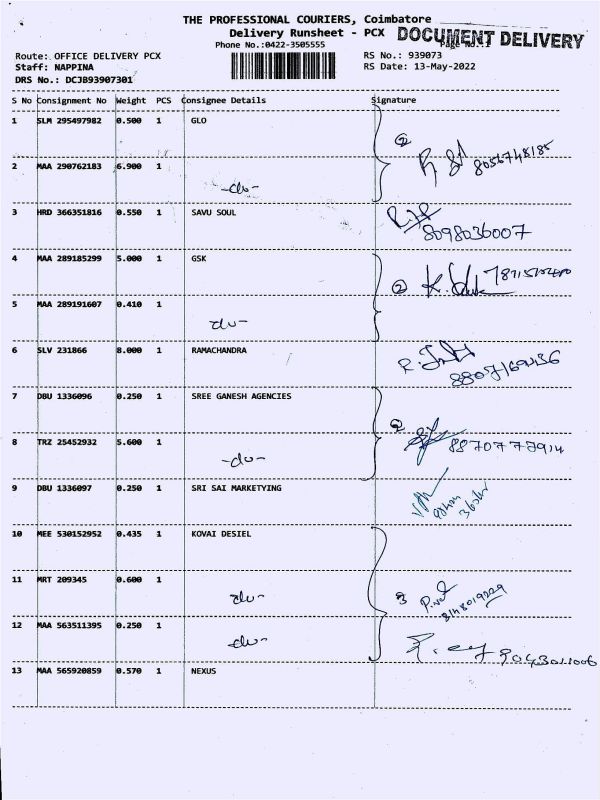 THE PROFESSIONAL COURIERS, Coimbatore
Delivery Runsheet - PCX DOCUMENT DELIVERY
Phone No.:0422-3505555 Page No.:1
Route: OFFICE DELIVERY PCX RS No.: 939073
Staff: NAPPINA RS Date: 13-May-2022
DRS No.: DCJB93907301
S No Consignment No Weight PCS Consignee Details Signature
1 SLM 295497982 0.500 1 GLO
2 8056748185
2 MAA 290762183 6.900 1 -do-
3 HRD 366351816 0.550 1 SAVU SOUL
8098036007
4 MAA 289185299 5.000 1 GSK
2
5 MAA 289191607 0.410 1 do-
6 SLV 231866 8.000 1 RAMACHANDRA
7 DBU 1336096 0.250 1 SREE GANESH AGENCIES
2
8 TRZ 25452932 5.600 1 -do-
9 DBU 1336097 0.250 1 SRI SAI MARKETYING
10 MEE 530152952 0.435 1 KOVAI DESIEL
11 MRT 209345 0.600 1 do-
3
12 MAA 563511395 0.250 1 do-
9043011006
13 MAA 565920859 0.570 1 NEXUS